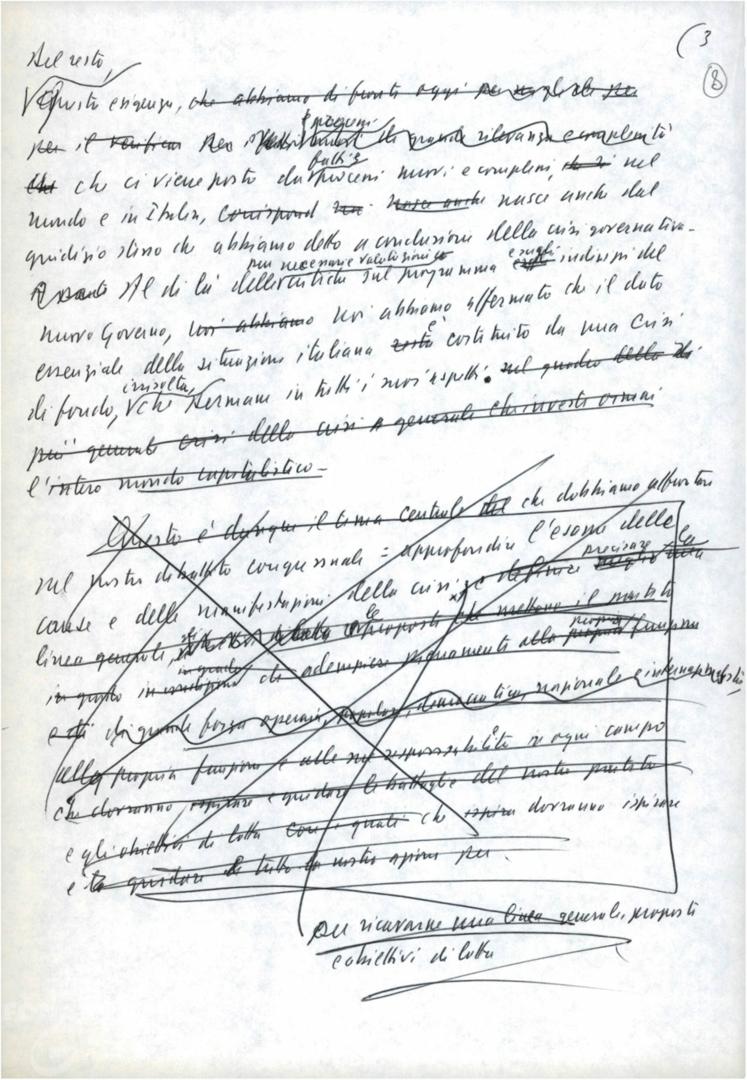 (3
8
Del resto,
Questa esigenza, che abbiamo di fronte oggi
per il verificar per i problemi di grande rilevanza e complessità
che che ci viene posta da fatti e processi nuovi e complessi, nel
mondo e in Italia, corrispond nasce anche nasce anche dal
giudizio stesso che abbiamo dato a conclusione della crisi governativa.
Al di là delle pur necessarie valutazioni critiche sul programma e sugli indirizzi del
nuovo Governo, noi abbiamo noi abbiamo affermato che il dato
essenziale della situazione italiana resta è costituito da una crisi
di fondo, irrisolta, che permane in tutti i suoi aspetti. nel quadro della
più generale crisi della crisi generale che investe ormai
l'intero mondo capitalistico.
Questo è dunque il tema centrale del che dobbiamo affrontare
nel nostro dibattito congressuale = approfondire l'esame delle
cause e delle manifestazioni della crisi e definire precisare meglio la
linea generale, le proposte che mettano il partito
in grado di adempiere pienamente alla propria funzione
di grande forza operaia, popolare, democratica, nazionale e internazionalista
alla propria funzione e alle sue responsabilità in ogni campo
che dovranno ispirare e guidare le battaglie del nostro partito
e gli obiettivi di lotta con i quali che ispira dovranno ispirare
e guidare tutta la nostra azione per.
per ricavarne una linea generale, proposte
e obiettivi di lotta